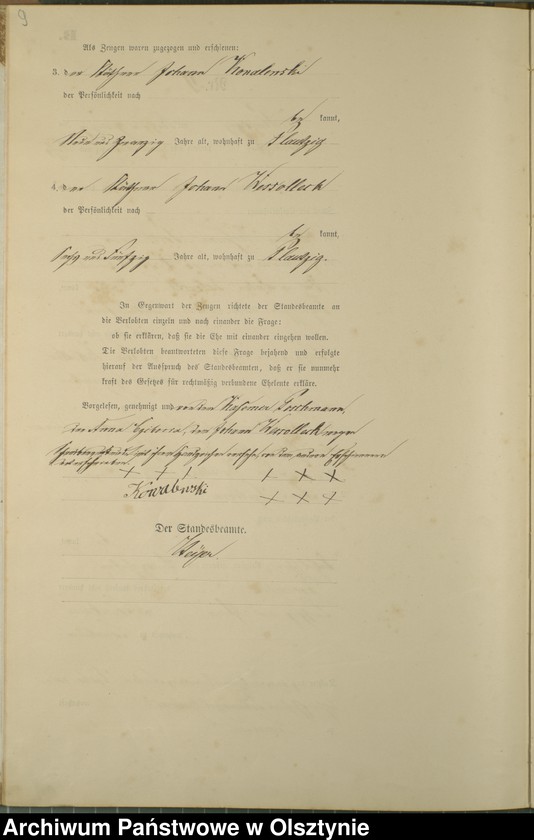 9
Als Zeugen waren zugezogen und erschienen:
3. der Käthner Johann Kowalewski
der Persönlichkeit nach
be kannt,
Neun und zwanzig Jahre alt, wohnhaft zu Plautzig
4. der Käthner Johann Kessolleck
der Persönlichkeit nach
be kannt,
Sechs und Fünfzig Jahre alt, wohnhaft zu Plautzig.
In Gegenwart der Zeugen richtete der Standesbeamte an
die Verlobten einzeln und nach einander die Frage:
ob sie erklären, daß sie die Ehe mit einander eingehen wollen.
Die Verlobten beantworteten diese Frage bejahend und erfolgte
hierauf der Ausspruch des Standesbeamten, daß er sie nunmehr
kraft des Gesetzes für rechtmäßig verbundene Eheleute erkläre.
Vorgelesen, genehmigt und von dem
der Anna dem Johann wegen
mit ihren Handzeichen von dem
unterschrieben
Kowalewski
Der Standesbeamte.
Archiwum Państwowe w Olsztynie